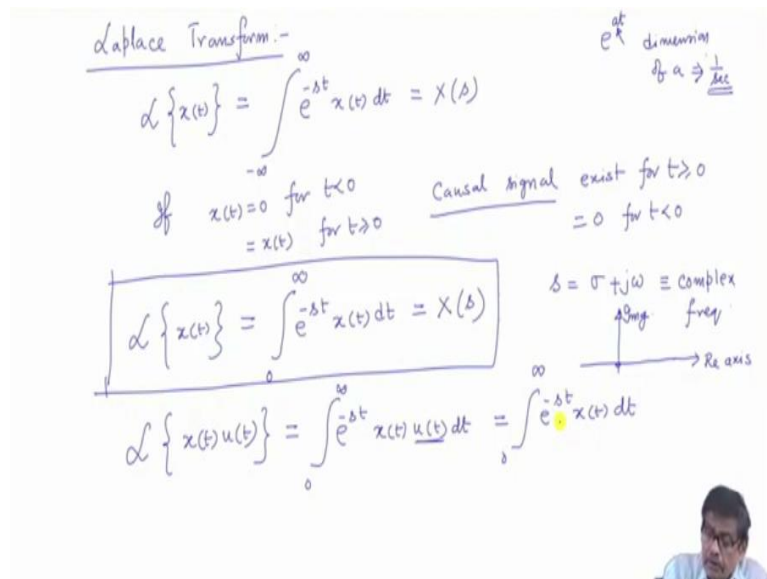 Laplace Transform:-
e^{at} dimension
of a ⇒ 1/sec
L{x(t)} = ∫_{-∞}^{∞} e^{-st} x(t) dt = X(s)
If x(t) = 0 for t<0
= x(t) for t≥0
Causal signal exist for t≥0
= 0 for t<0
L{x(t)} = ∫_{0}^{∞} e^{-st} x(t) dt = X(s)
s = σ + jω ≡ complex
freq
Img
Re axis
L{x(t) u(t)} = ∫_{0}^{∞} e^{-st} x(t) u(t) dt = ∫_{0}^{∞} e^{-st} x(t) dt